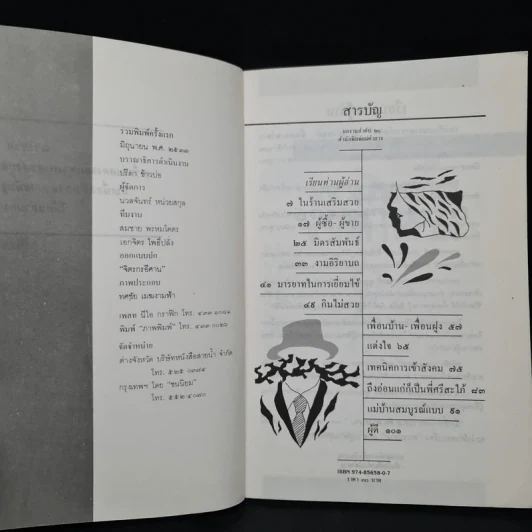 รวมพิมพ์ครั้งแรก
มิถุนายน พ.ศ. ๒๕๓๓
บรรณาธิการดำเนินงาน
ปรีดา ข้าวบ่อ
ผู้จัดการ
นวลจันทร์ หน่วยสกุล
ทีมงาน
สมชาย พรหมโคตร
เอกจิตร โพธิ์ปลั่ง
ออกแบบปก
"จิตรกรอีศาน"
ภาพประกอบ
ทศชัย เมฆงามฟ้า
เพลท นีโอ กราฟิก โทร. ๔๓๓ ๐๐๘๑
พิมพ์ "ภาพพิมพ์" โทร. ๔๓๓ ๐๐๒๖
จัดจำหน่าย
ต่างจังหวัด บริษัทหนังสือสายน้ำ จำกัด
โทร. ๕๒๕
กรุงเทพฯ โดย "ชนนิยม"
โทร. ๕๕๒ ๔๐๗๐
สารบัญ
เรียนท่านผู้อ่าน
๗ ในร้านเสริมสวย
๑๗ ผู้ซื้อ-ผู้ขาย
๒๕ มิตรสัมพันธ์
๓๓ งามอิริยาบถ
๔๑ มารยาทในการเยี่ยมไข้
๔๙ กินไม่สวย
เพื่อนบ้าน-เพื่อนฝูง ๕๗
แต่งใจ ๖๕
เทคนิคการเข้าสังคม ๗๕
ถึงอ่อนแก่ก็เป็นพี่ศรีสะใภ้ ๘๓
แม่บ้านสมบูรณ์แบบ ๙๑
ผู้ดี ๑๐๑
ISBN 974-85658-0-7
ราคา ๓๐ บาท